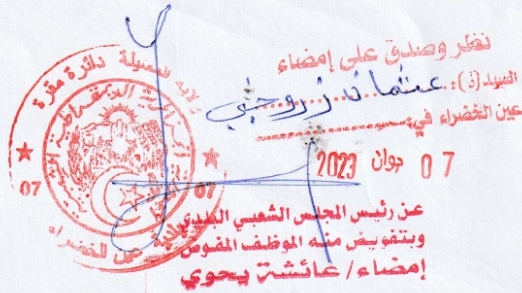 نظر وصدق على إمضاء
السيد(ة): عثمان زروجتي
عين الخضراء في:
07 جوان 2023
عن رئيس المجلس الشعبي البلدي
وبتفويض منه الموظف المفوض
إمضاء/ عائشة يحوي
ولاية المسيلة دائرة مقرة
الجزائرية الديمقراطية
07
07
بلدية عين الخضراء